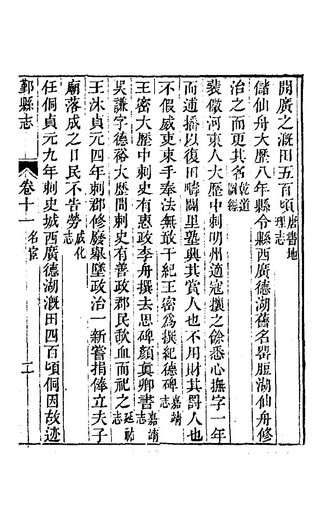 開廣之溉田五百頃唐書地理志
儲仙舟大歷八年縣令縣西廣德湖舊名罌脰湖仙舟修
治之而更其名乾道圖經
裴儆河東人大歷中刺明州適寇攘之餘悉心撫字一年
而逋播以復田疇闢里塾興其賞人也不用財其罰人也
不假威吏束手奉法無敢干紀王密爲撰紀德碑嘉靖志
王密大歷中刺史有惠政李舟撰去思碑顏眞卿書嘉靖志
吳謙字德裕大歷間刺史有善政郡民歃血而祀之延祐志
王沐貞元四年刺郡修廢舉墜政治一新嘗捐俸立夫子
廟落成之日民不告勞成化志
任侗貞元九年刺史城西廣德湖溉田四百頃侗因故迹
鄞縣志 卷十一 名宦 二